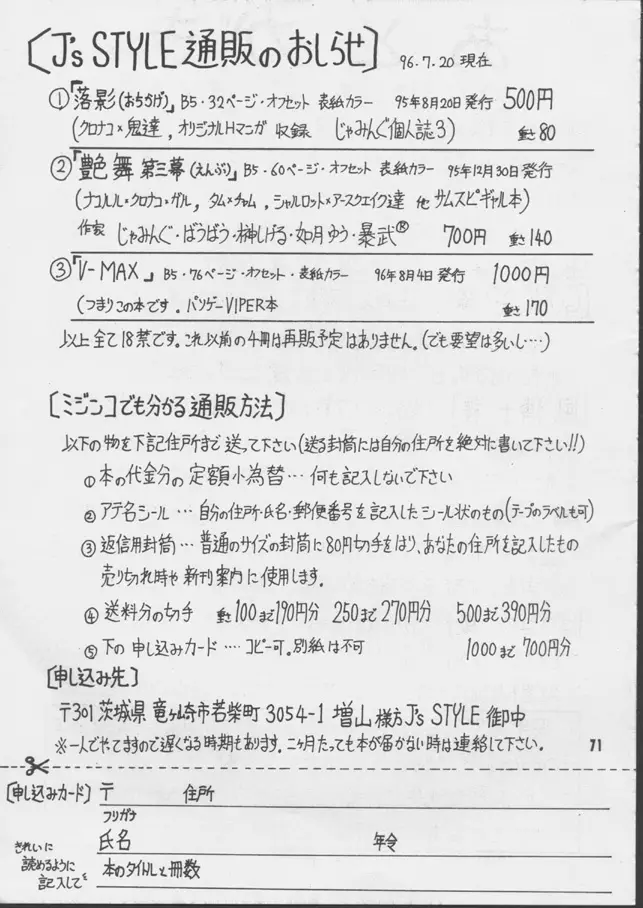 [J's STYLE 通販のおしらせ] 96.7.20 現在
①「落影(おちかげ)」B5・32ページ・オフセット 表紙カラー 95年8月20日発行 500円
(クロナコ×鬼達, オリジナルHマンガ 収録 じゃみんぐ個人誌3) 重さ80
②「艶舞 第三幕(えんぶ)」B5・60ページ・オフセット 表紙カラー 95年12月30日発行
(ナコルル×クロナコ×ガル, タム×チャム, シャルロット×アースクェイク達 他 サムスピギャル本)
作家 じゃみんぐ・ばうばう・榊しげる・如月ゆう・暴武® 700円 重さ140
③「V-MAX」B5・76ページ・オフセット・表紙カラー 96年8月4日発行 1000円
(つまりこの本です。パソゲーVIPER本 重さ170
以上全て18禁です。これ以前の4冊は再販予定はありません。(でも要望は多いし…)
[ミジンコでも分かる通販方法]
以下の物を下記住所まで送って下さい(送る封筒には自分の住所を絶対に書いて下さい!!)
①本の代金分の定額小為替…何も記入しないで下さい
②アテ名シール…自分の住所・氏名・郵便番号を記入したシール状のもの(テープのラベルも可)
③返信用封筒…普通のサイズの封筒に80円切手をはり、あなたの住所を記入したもの
売り切れ時や新刊案内に使用します。
④送料分の切手 重100まで190円分 250まで270円分 500まで390円分
⑤下の申し込みカード…コピー可。別紙は不可 1000まで700円分
[申し込み先]
〒301 茨城県竜ヶ崎市若柴町3054-1 増山様方J's STYLE御中
※一人でやてますので遅くなる時期もあります。二ヶ月たっても本が届かない時は連絡して下さい。 71
[申し込みカード] 〒 住所
フリガナ
氏名 年令
きれいに
読めるように
記入してを
本のタイトルと冊数